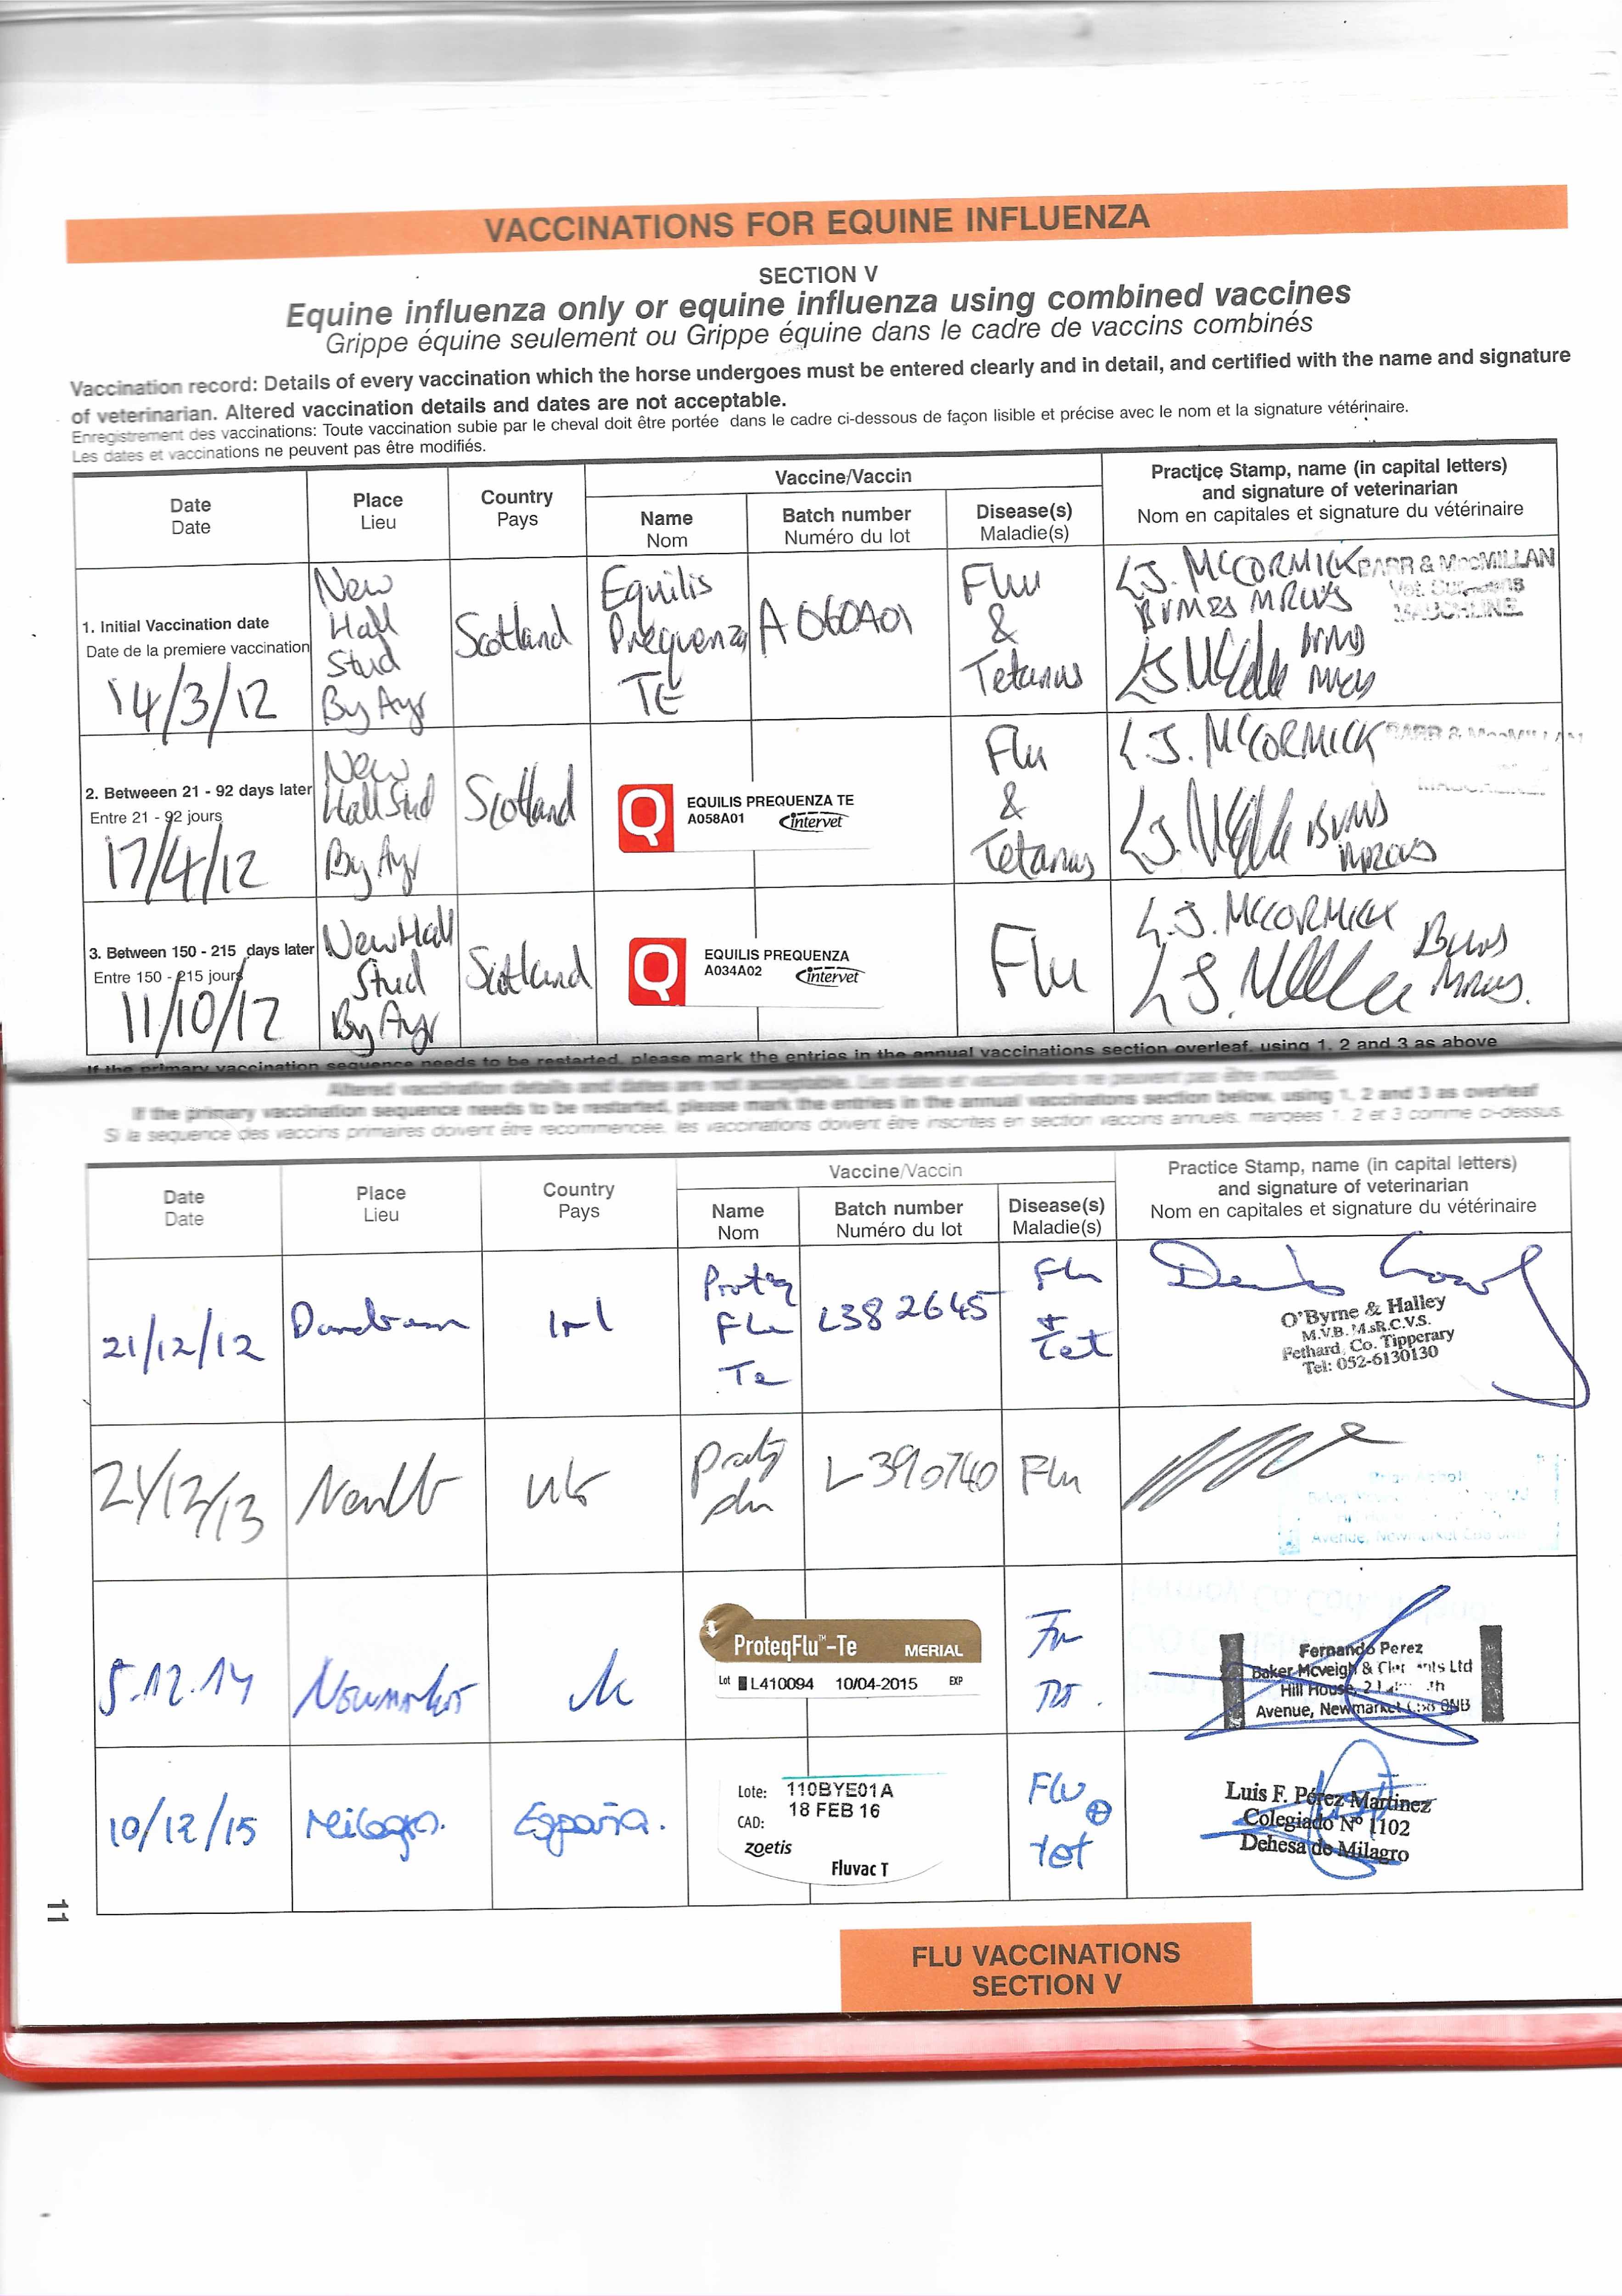 VACCINATIONS FOR EQUINE INFLUENZA
SECTION V
Equine influenza only or equine influenza using combined vaccines
Grippe équine seulement ou Grippe équine dans le cadre de vaccins combinés
Vaccination record: Details of every vaccination which the horse undergoes must be entered clearly and in detail, and certified with the name and signature
of veterinarian. Altered vaccination details and dates are not acceptable.
Enregistrement des vaccinations: Toute vaccination subie par le cheval doit être portée dans le cadre ci-dessous de façon lisible et précise avec le nom et la signature vétérinaire.
Les dates et vaccinations ne peuvent pas être modifiés.
Date
Date
Place
Lieu
Country
Pays
Vaccine/Vaccin
Name
Nom
Batch number
Numéro du lot
Disease(s)
Maladie(s)
Practice Stamp, name (in capital letters)
and signature of veterinarian
Nom en capitales et signature du vétérinaire
1. Initial Vaccination date
Date de la premiere vaccination
14/3/12
New
Hall
Stud
By Ayr
Scotland
Equilis
Prequenza
TE
A060A01
Flu
&
Tetanus
L.J. McCORMICK
BVMS MRCVS
BARR & McMILLAN
Vet. Surgeons
MAUCHLINE
BVMS
MRCVS
2. Betweeen 21 - 92 days later
Entre 21 - 92 jours
17/4/12
New
Hall Stud
By Ayr
Scotland
Q
EQUILIS PREQUENZA TE
A058A01
intervet
Flu
&
Tetanus
L.J. McCORMICK
BARR & McMILLAN
MAUCHLINE
BVMS
MRCVS
3. Between 150 - 215 days later
Entre 150 - 215 jours
11/10/12
New Hall
Stud
By Ayr
Scotland
Q
EQUILIS PREQUENZA
A034A02
intervet
Flu
L.J. McCORMICK
BVMS
MRCVS.
If the primary vaccination sequence needs to be restarted, please mark the entries in the annual vaccinations section overleaf, using 1, 2 and 3 as above
Altered vaccination details and dates are not acceptable. Les dates et vaccinations ne peuvent pas être modifiés.
If the primary vaccination sequence needs to be restarted, please mark the entries in the annual vaccinations section below, using 1, 2 and 3 as overleaf
Si la sequence des vaccins primaires doivent être recommencée, les vaccinations doivent être inscrites en section vaccins annuels, marqees 1, 2 et 3 comme ci-dessus.
Date
Date
Place
Lieu
Country
Pays
Vaccine/Vaccin
Name
Nom
Batch number
Numéro du lot
Disease(s)
Maladie(s)
Practice Stamp, name (in capital letters)
and signature of veterinarian
Nom en capitales et signature du vétérinaire
21/12/12
Irl
Proteq
Flu
Te
L382645
Flu
+
Tet
O'Byrne & Halley
M.V.B. M.sR.C.V.S.
Fethard, Co. Tipperary
Tel: 052-6130130
21/12/13
UK
Proteq
flu
L390740
Flu
Avenue, Newmarket CB8
5.12.14
Newmarket
UK
ProteqFlu™-Te
MERIAL
Lot L410094 10/04-2015 EXP
Flu
Fernando Perez
Baker Mcveigh & Clements Ltd
Hill House,
Avenue, Newmarket CB8 0NB
10/12/15
Milagro.
España.
Lote: 110BYE01A
18 FEB 16
CAD:
zoetis
Fluvac T
Flu
+
tet
Luis F. Pérez Martinez
Colegiado Nº 1102
Dehesa de Milagro
11
FLU VACCINATIONS
SECTION V